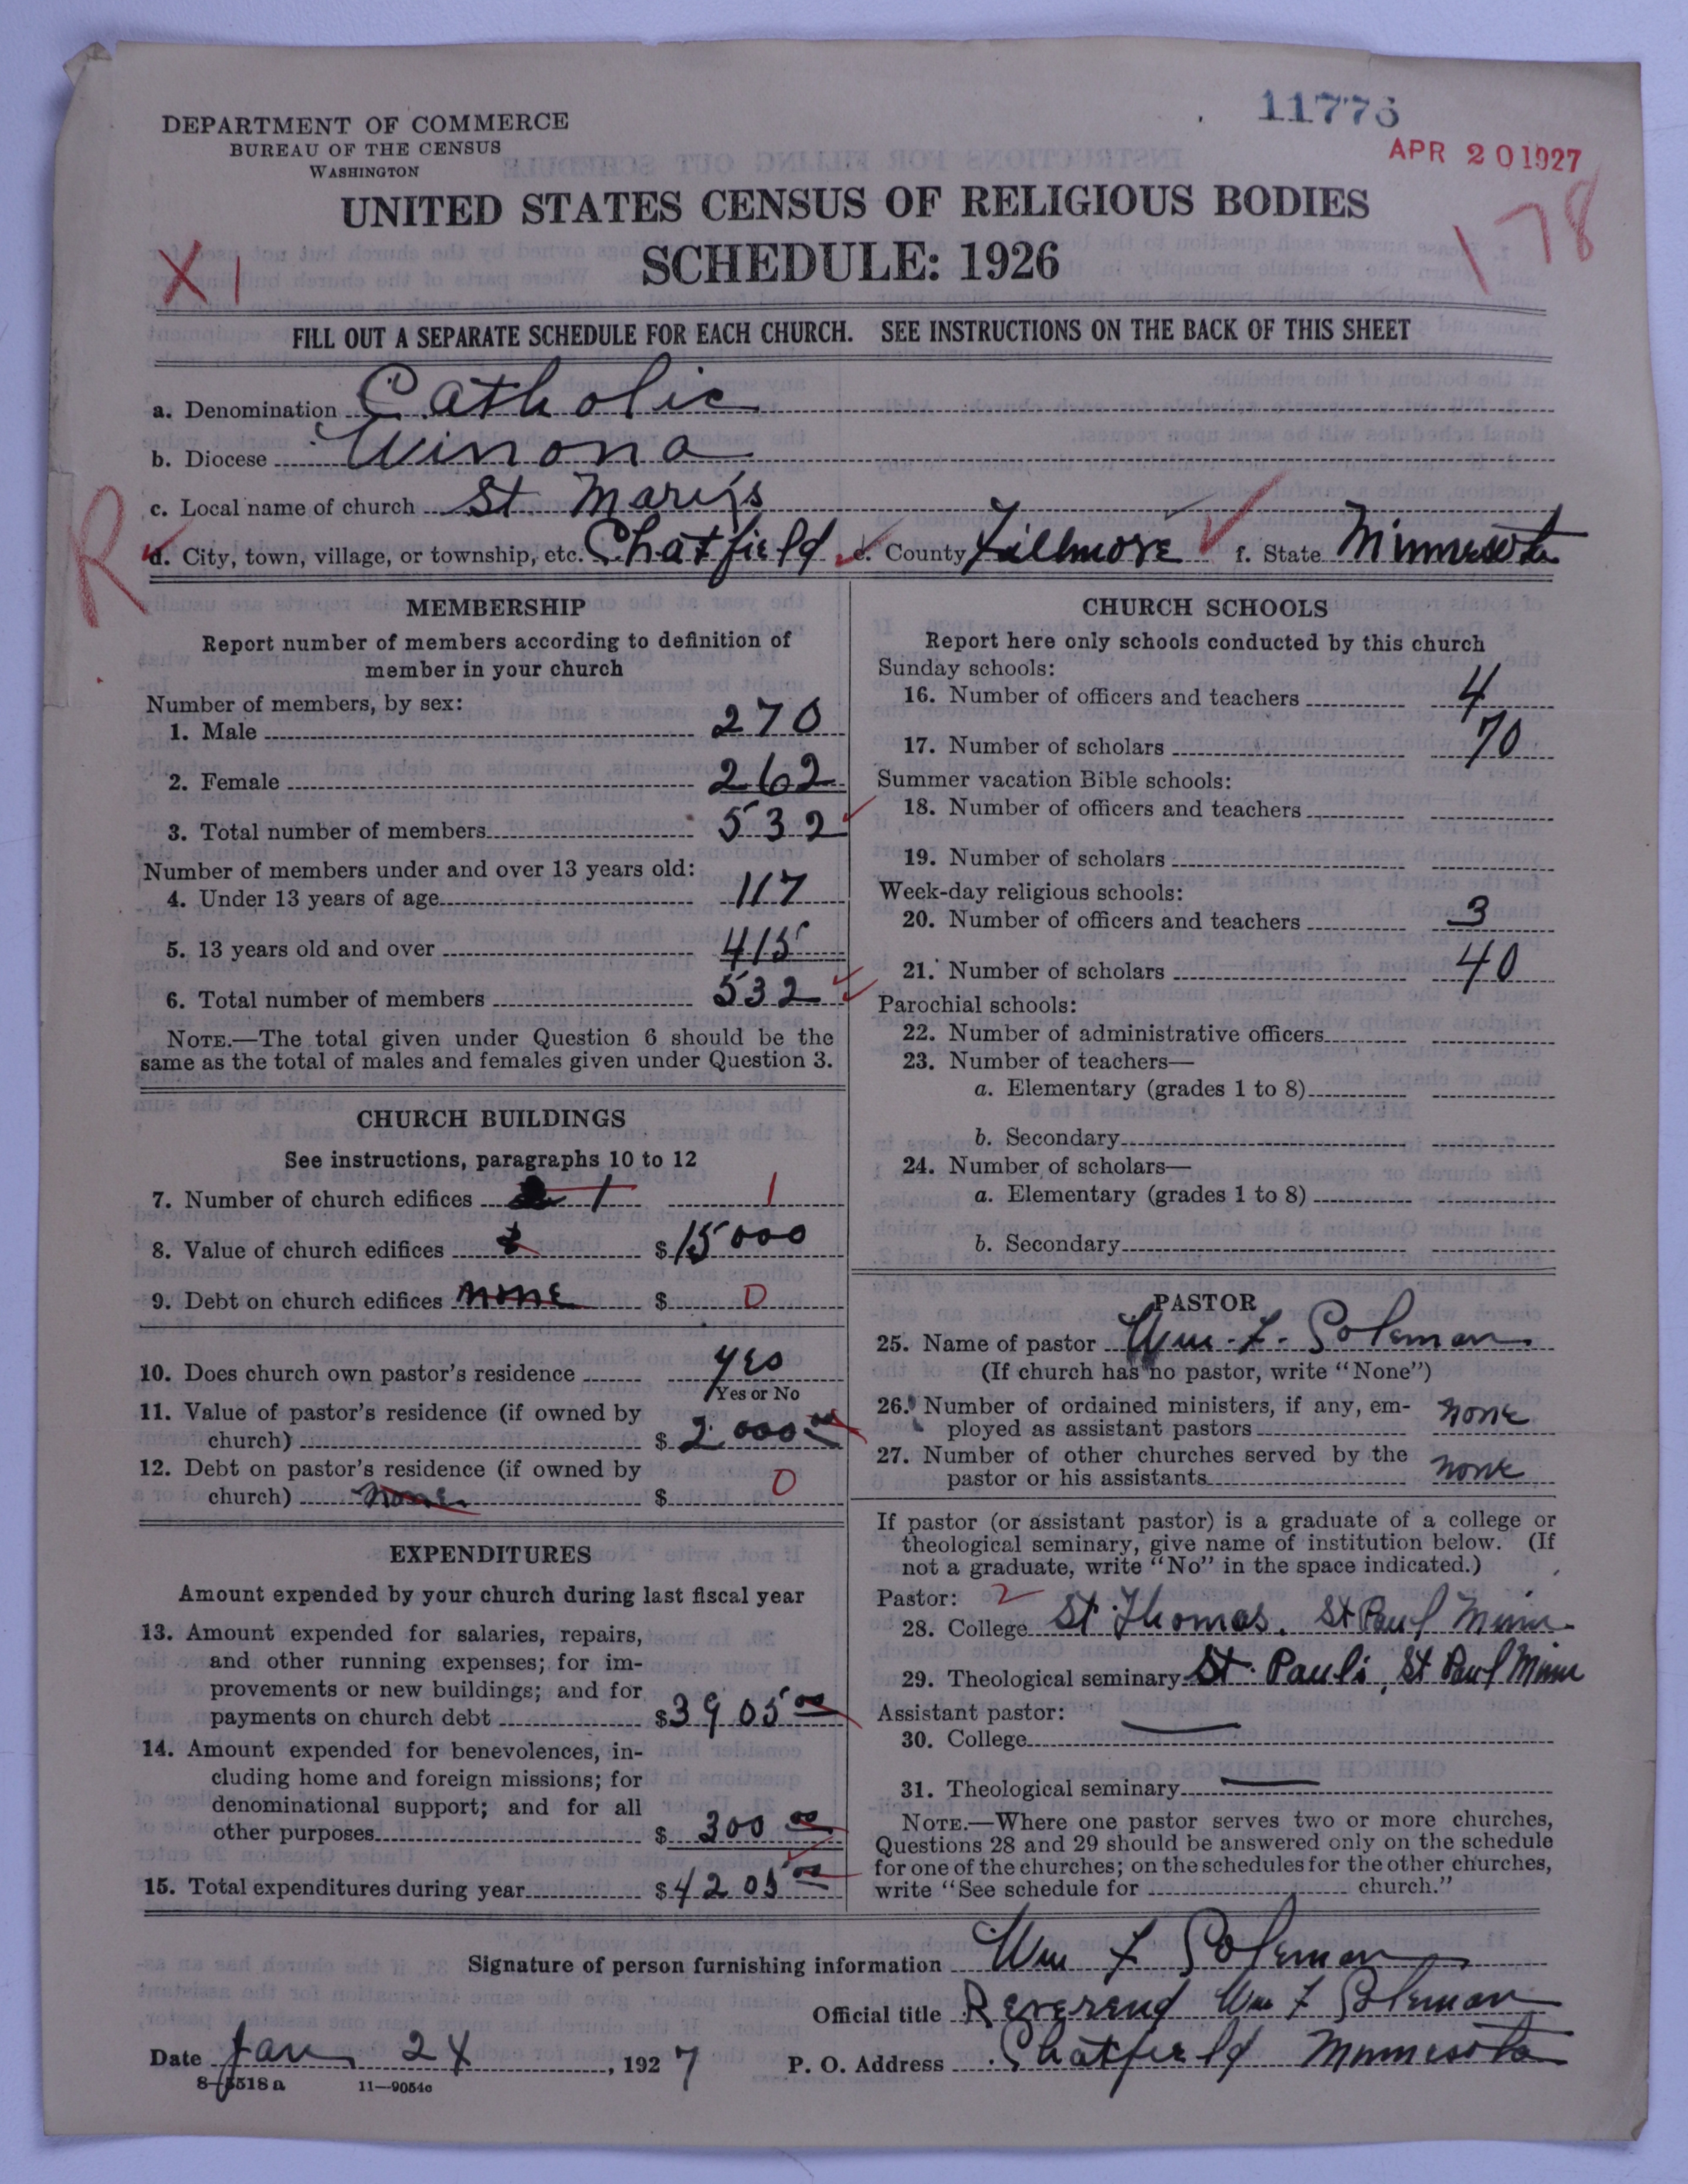 11776
APR 20 1927
DEPARTMENT OF COMMERCE
BUREAU OF THE CENSUS
WASHINGTON
UNITED STATES CENSUS OF RELIGIOUS BODIES
SCHEDULE: 1926
X 1
178
FILL OUT A SEPARATE SCHEDULE FOR EACH CHURCH. SEE INSTRUCTIONS ON THE BACK OF THIS SHEET
a. Denomination Catholic
b. Diocese Winona
c. Local name of church St Mary's
R
d. City, town, village, or township, etc. Chatfield e. County Fillmore f. State Minnesota
MEMBERSHIP
Report number of members according to definition of
member in your church
Number of members, by sex:
1. Male 270
2. Female 262
3. Total number of members 532
Number of members under and over 13 years old:
4. Under 13 years of age 117
5. 13 years old and over 415
6. Total number of members 532
NOTE.—The total given under Question 6 should be the
same as the total of males and females given under Question 3.
CHURCH BUILDINGS
See instructions, paragraphs 10 to 12
7. Number of church edifices 1 1
8. Value of church edifices $15000
9. Debt on church edifices none $ 0
10. Does church own pastor's residence yes
Yes or No
11. Value of pastor's residence (if owned by
church) $ 2000 00
12. Debt on pastor's residence (if owned by
church) none $ 0
EXPENDITURES
Amount expended by your church during last fiscal year
13. Amount expended for salaries, repairs,
and other running expenses; for im-
provements or new buildings; and for
payments on church debt $3905 00
14. Amount expended for benevolences, in-
cluding home and foreign missions; for
denominational support; and for all
other purposes $ 300 00
15. Total expenditures during year $4205 00
CHURCH SCHOOLS
Report here only schools conducted by this church
Sunday schools:
16. Number of officers and teachers 4
17. Number of scholars 70
Summer vacation Bible schools:
18. Number of officers and teachers
19. Number of scholars
Week-day religious schools:
20. Number of officers and teachers 3
21. Number of scholars 40
Parochial schools:
22. Number of administrative officers
23. Number of teachers—
a. Elementary (grades 1 to 8)
b. Secondary
24. Number of scholars—
a. Elementary (grades 1 to 8)
b. Secondary
PASTOR
25. Name of pastor Wm. F. Coleman
(If church has no pastor, write "None")
26. Number of ordained ministers, if any, em-
ployed as assistant pastors none
27. Number of other churches served by the
pastor or his assistants none
If pastor (or assistant pastor) is a graduate of a college or
theological seminary, give name of institution below. (If
not a graduate, write "No" in the space indicated.)
Pastor: 2
28. College St. Thomas. St Paul Minn.
29. Theological seminary St. Paul's, St Paul Minn
Assistant pastor:
30. College
31. Theological seminary
NOTE.—Where one pastor serves two or more churches,
Questions 28 and 29 should be answered only on the schedule
for one of the churches; on the schedules for the other churches,
write "See schedule for church."
Signature of person furnishing information Wm F Coleman
Official title Reverend Wm F Coleman
Date Jan 24, 1927 P. O. Address Chatfield Minnesota
8—5518a 11—9054c